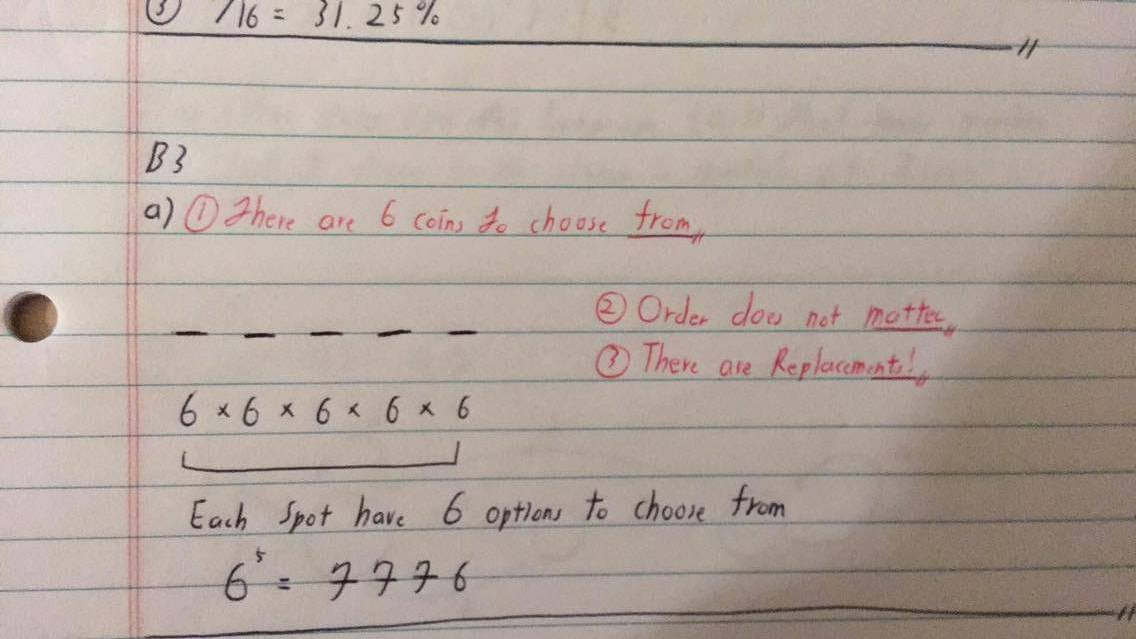 ③ /16 = 31.25%
B3
a) ① There are 6 coins to choose from
② Order does not matter
③ There are Replacements!
6 × 6 × 6 × 6 × 6
Each Spot have 6 options to choose from
6⁵ = 7776